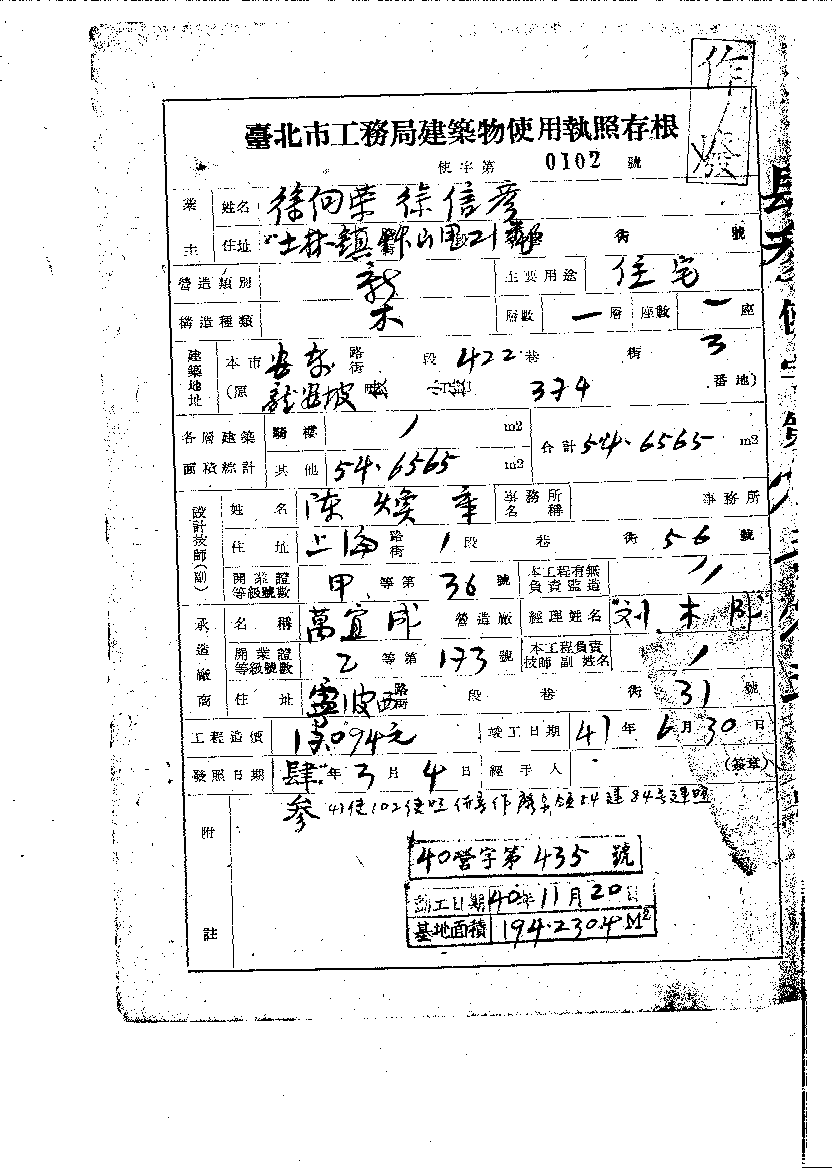 作
廢
臺北市工務局建築物使用執照存根
使字第 0102 號
業主 姓名 徐向荣 徐信彦
住址 士林鎮 山里21鄰 街 號
營造類別 新 主要用途 住宅
構造種類 木 層數 一層 座數 一座
建築地址 本市 安东 路街 段 422 巷 街 3
(原 龍安坡 段 小段 374 番地)
各層建築面積綜計 騎樓 / m2 合計 54.6565 m2
其他 54.6565 m2
設計技師(副) 姓名 陳煥章 事務所名稱 事務所
住址 上海 路街 1 段 巷 街 56 號
開業證等級號數 甲 等第 36 號 本工程有無負責監造 /
承造廠商 名稱 萬宜成 營造廠 經理姓名 刘木
開業證等級號數 乙 等第 173 號 本工程負責技師副姓名 /
住址 寧波西 路街 段 巷 街 31 號
工程造價 13094元 竣工日期 41年6月30日
發照日期 肆參年3月4日 經手人 (簽章)
附註 43使102使照併案作廢 領54建84号建照
40營字第 435 號
動工日期 40年11月20日
基地面積 194.2304 M²